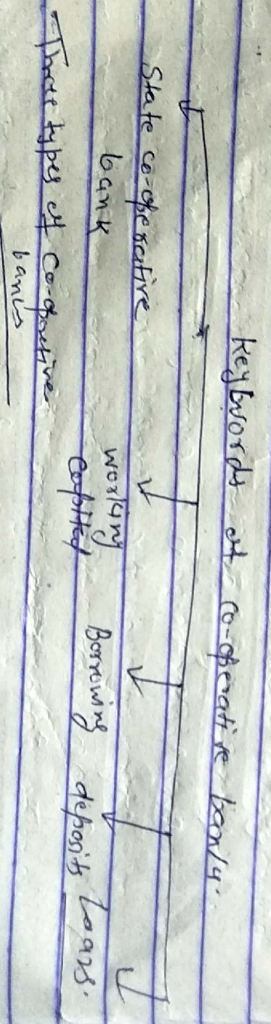 Keywords of co-operative bank.
State co-operative bank
working capital
Borrowing
deposits
Loans.
Three types of co-operative
banks